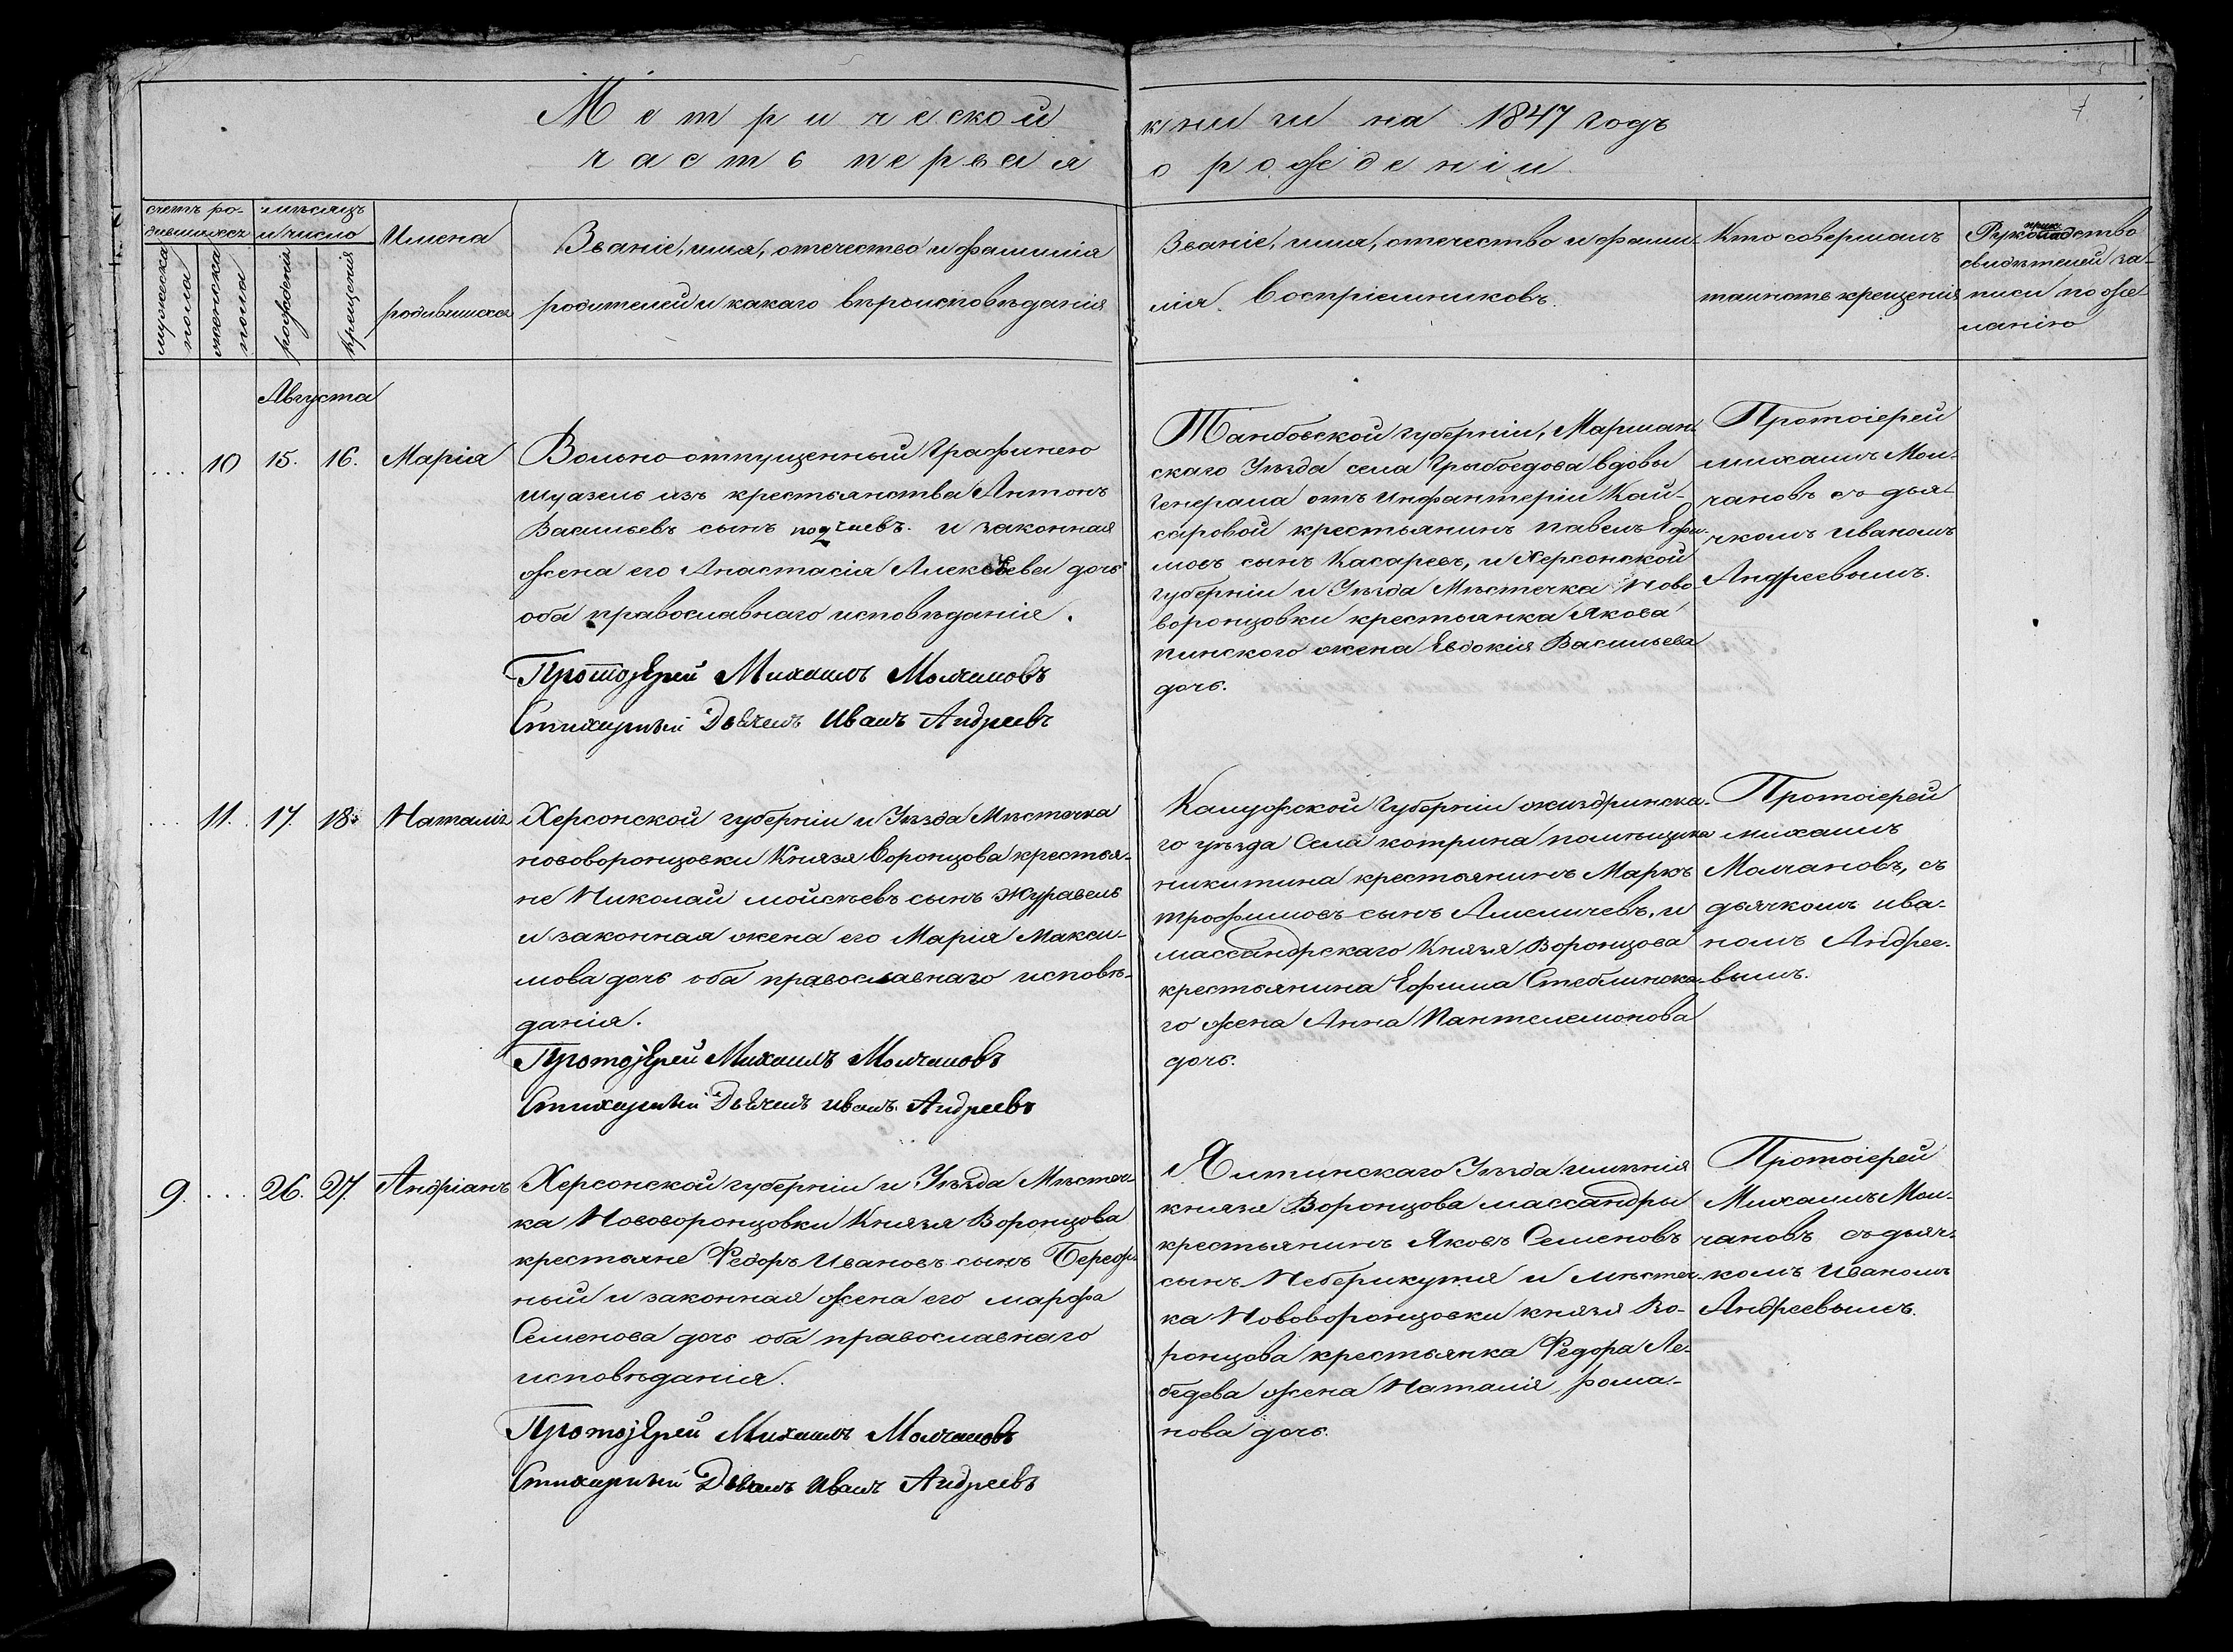 Метрической книги на 1847 годъ
часть первая о рожденіи
7
счетъ ро-
дившихся
мужеска
пола
женска
пола
мѣсяцъ
и число
рожденія
крещенія
Имена
родившихся
Званіе, имя, отечество и фамилія
родителей и какаго вѣроисповѣданія
Званіе, имя, отечество и фами-
лія Воспріемниковъ.
Кто совершалъ
таинство крещенія
Рукоприкладство
свидѣтелей за-
писи по же-
ланію
Августа
... 10 15. 16. Марія
Вольно отпущенный Графинею
Шуазель изъ крестьянства Антонъ
Васильевъ сынъ и законная
жена его Анастасія Алексѣева дочь
оба православнаго исповѣданія.
Протоjерей Михаилъ Молчановъ
Стихарный Дьячекъ Иванъ Андреевъ
Танбовской губерніи, Маршан-
скаго Уѣзда села Грыбоедова вдовы
Генерала отъ Инфантеріи Кай-
саровой крестьянинъ Павелъ Ефи-
мовъ сынъ Касаревъ, и Херсонской
губерніи и Уѣзда Мѣстечка Ново-
воронцовки крестьянка Якова
пинского жена Евдокія Васильева
дочь.
Протоіерей
михаилъ Мол-
чановъ съ дья-
чкомъ Иваномъ
Андреевымъ.
... 11. 17. 18. Наталія
Херсонской губерніи и Уѣзда Мѣстечка
нововоронцовки Князя Воронцова крестья-
не Николай мойсѣевъ сынъ Журавель
и законная жена его Марія Макси-
мова дочь оба православнаго исповѣ-
данія.
Протоjерей Михаилъ Молчановъ
Стихарный Дьячекъ Иванъ Андреевъ
Калужской Губерніи жиздринска-
го уѣзда Села котрина помѣщика
никитина крестьянинъ Маркъ
трофимовъ сынъ Амеличевъ, и
массандрскаго Князя Воронцова
крестьянина Ефима Стеблинска-
го жена Анна Пантелемонова
дочь.
Протоіерей
михаилъ
Молчановъ, съ
дьячкомъ ива-
номъ Андрее-
вымъ.
9. ... 26. 27. Андріанъ
Херсонской губерніи и Уѣзда Мѣстеч-
ка Нововоронцовки Князя Воронцова
крестьяне Федоръ Ивановъ сынъ Береж-
ный и законная жена его марфа
Семенова дочь оба православнаго
исповѣданія.
Протоjерей Михаилъ Молчановъ
Стихарный Дьячекъ Иванъ Андреевъ
Ялтинскаго Уѣзда имѣнія
князя Воронцова массандры
крестьянинъ Яковъ Семеновъ
сынъ Неберикутя и мѣстеч-
ка Нововоронцовки князя Во-
ронцова крестьянка Федора Ле-
бедева жена Наталія рома-
нова дочь.
Протоіерей
Михаилъ Мол-
чановъ съ дьяч-
комъ Иваномъ
Андреевымъ.